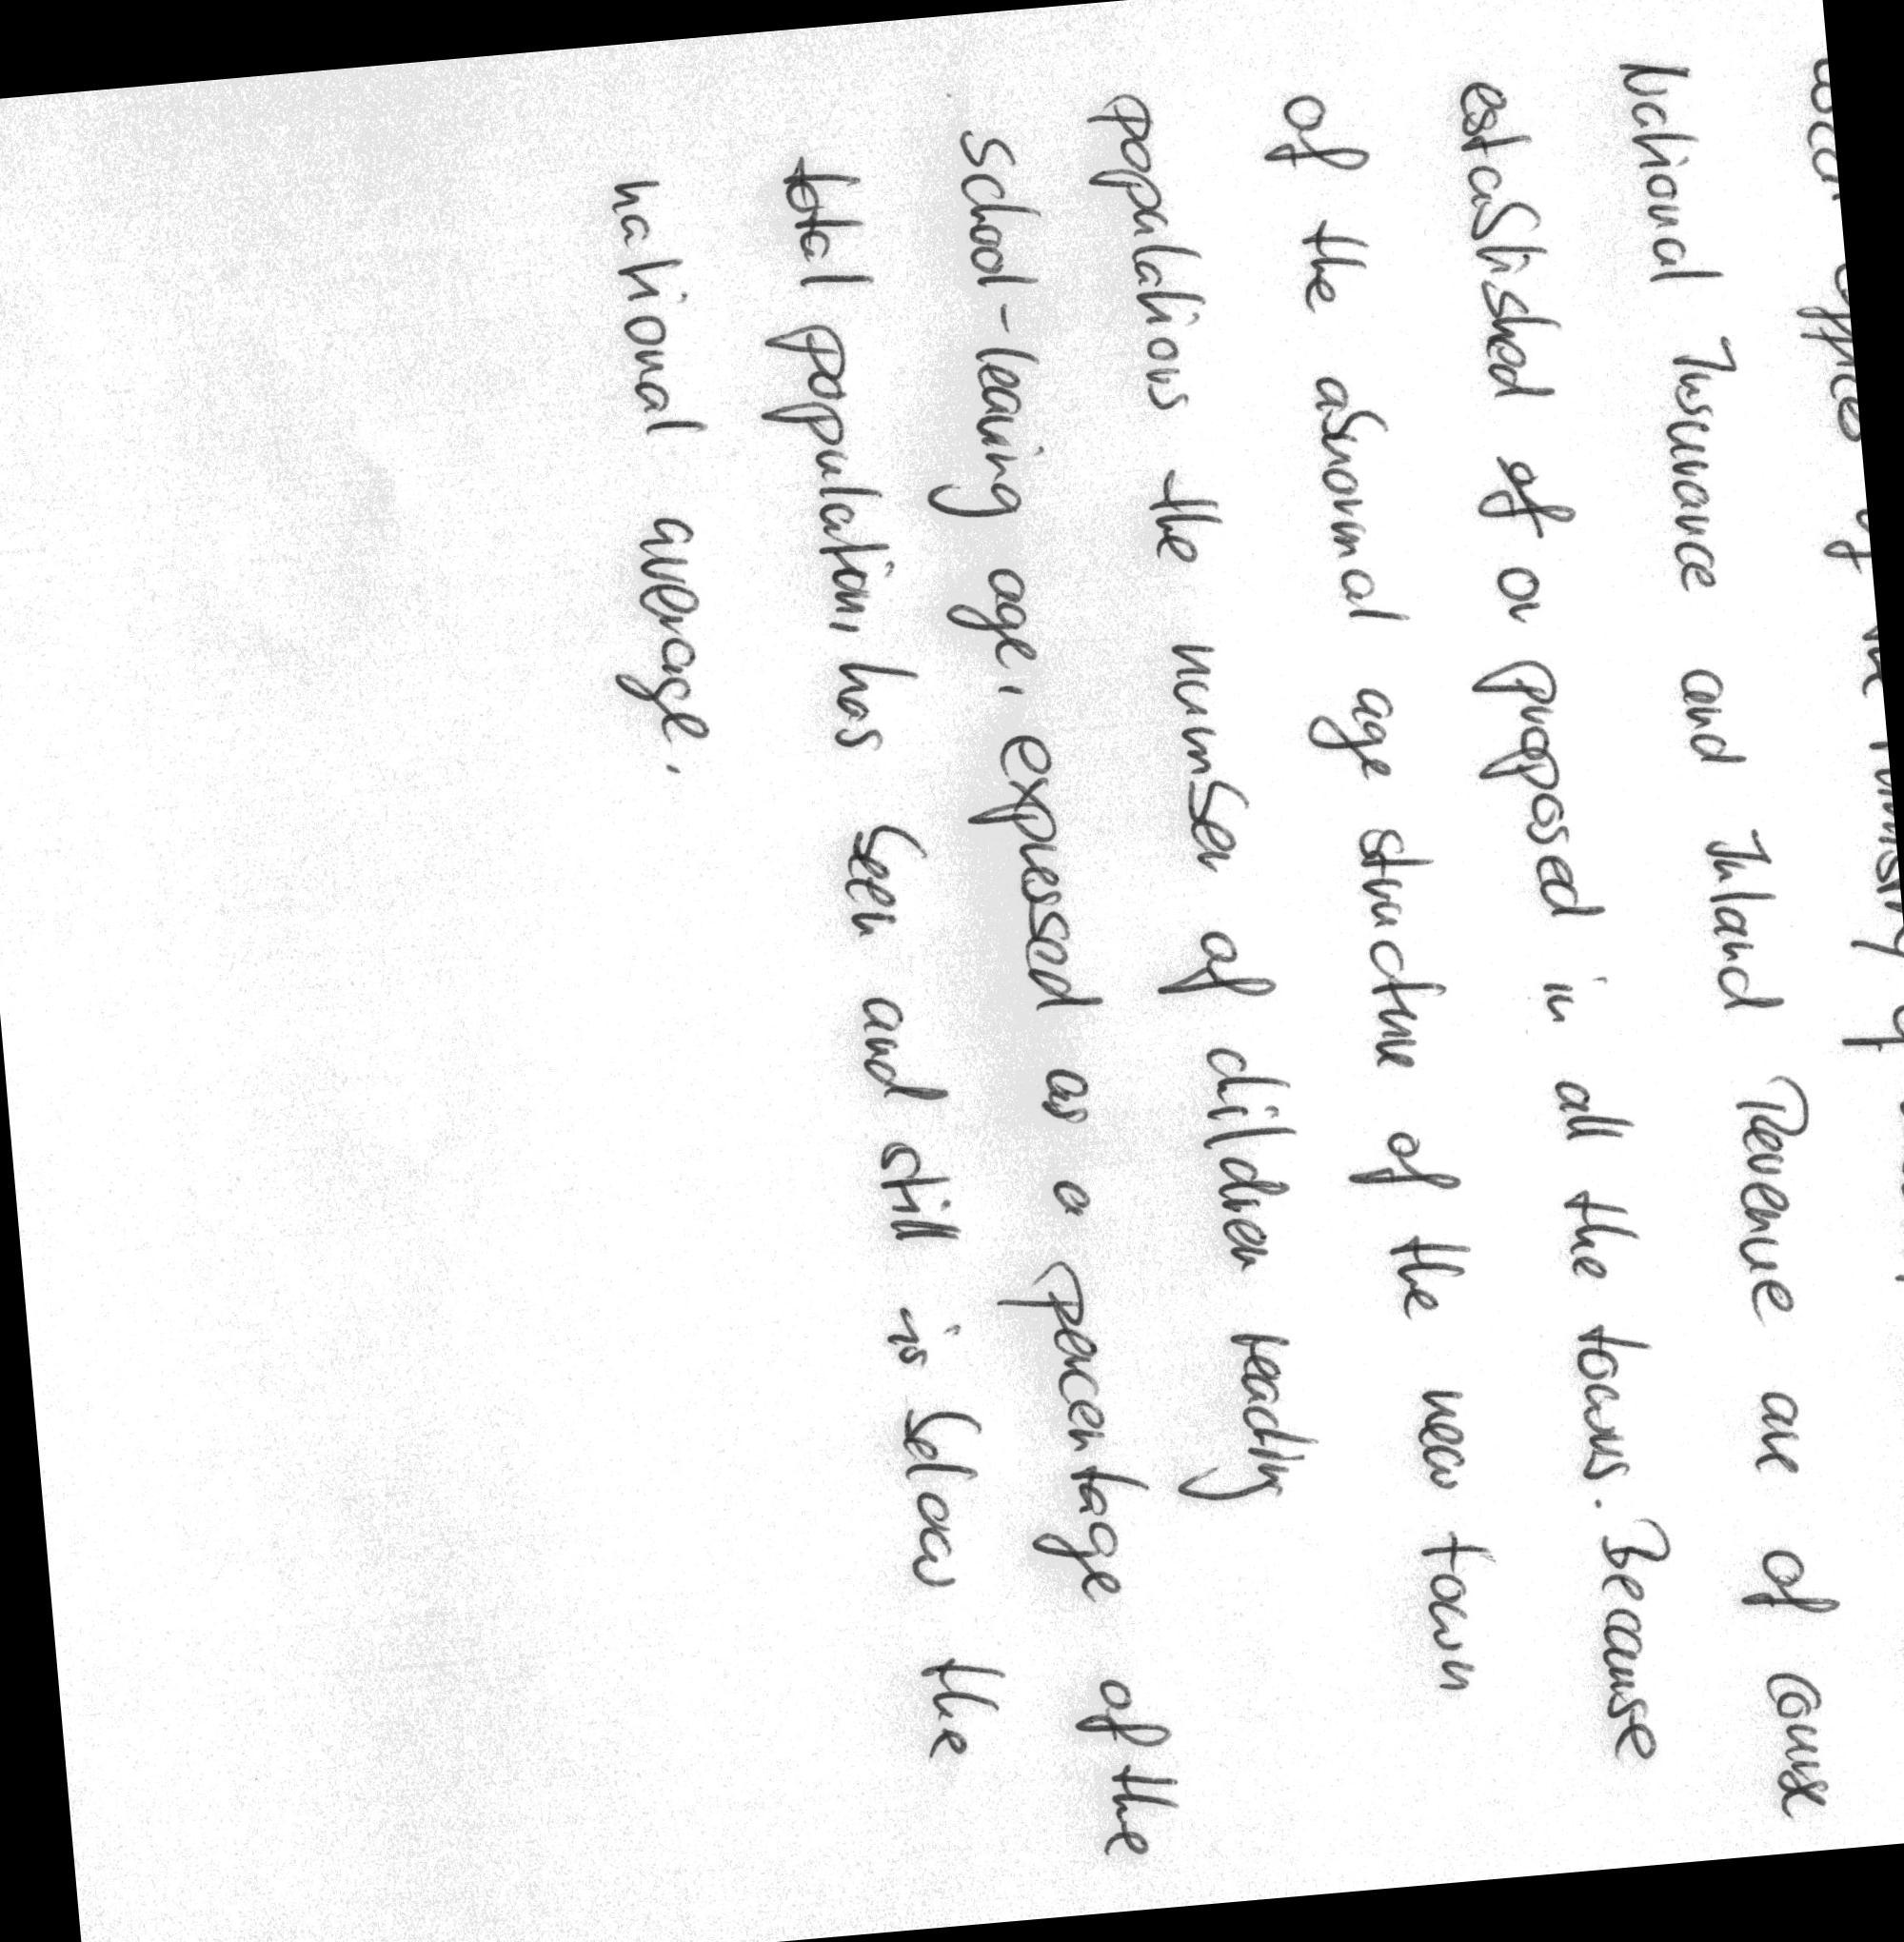 National Insurance and Inland Revenue are of course
established of or proposed in all the towns. Because
of the abnormal age structure of the new town
populations the number of children reading
school-leaving age, expressed as a percentage of the
total population, has been and still is below the
national average.